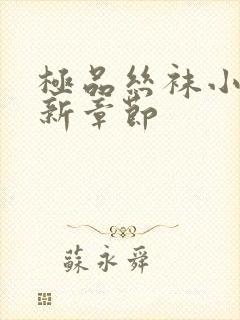 極品絲袜小
新章節
蘇永舜